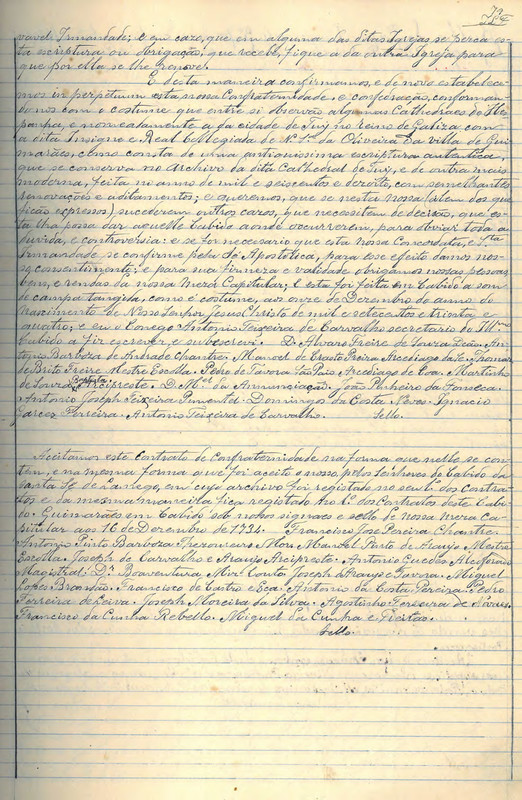 vavel Irmandade; e em cazo, que em alguma das ditas Igrejas se perca es-
ta escriptura ou obrigação, que recebe, fique a da outra Igreja para
que por ella se lhe renove.
E desta maneira confirmamos, e de novo estabelece-
mos in perpetuum esta nossa Confraternidade, e confederação, conforman-
do nos com o costume que entre si observão algumas Cathedraes de Hes-
panha, e nomeadamente a da cidade de Tuy no reino de Galiza com
a dita Insigne e Real Collegiada de N. Srª da Oliveira da villa de Gui-
marães, como consta de uma antiquissima escriptura autentica,
que se conserva no Archivo da dita Cathedral de Tuy, e de outra mais
moderna, feita no anno de mil e seiscentos e dezoito, com semelhantes
renovações e aditamentos; e queremos, que se nesta nossa (alem dos que
ficão expressos) sucederem outros cazos, que necessitem de decizão, que es-
ta lha possa dar aquelle Cabido aonde occurrerem, para obviar toda a
duvida, e controversia: e se for necesario que esta nossa Concordata, e
Irmandade se confirme pela Sé Apostolica, para esse efeito damos nos-
so consentimento; e para sua firmeza e validade obrigamos nossas pessoas,
bens, e rendas da nossa Meza Capitular; E esta foi feita em Cabido a som
de campa tangida, como é costume, aos onze de Dezembro do anno do
Nascimento de Nosso Senhor Jesus Christo de mil e setecentos e trinta e
quatro; e eu o Conego Antonio Teixeira de Carvalho secretario do Ill.mo
Cabido a fiz escrever e subescrevi. D. Alvaro Freire de Souza Deão. An-
tonio Barboza de Andrade Chantre. Manoel de Crasto Preira Arcediago da Sé. Thomas
de Brito Freire Mestre Escolla. Pedro de Tavora São Paio Arcediago de Coa. Martinho
de Souza Baptista Arcipreste. D. M.el da Annunciação. João Pinheiro da Fonseca.
Antonio Joseph Teixeira Pimentel. Domingos da Costa Neves. Ignacio
Garcez Ferreira. Antonio Teixeira de Carvalho. Sello.
Aceitamos este Contrato de Confraternidade na forma que nelle se con-
tem, e na mesma forma que foi aceito o nosso, pelos Senhores do Cabido da
Santa Sé de Lamego, em cujo archivo foi registado no seu L.º dos Contra-
tos e da mesma maneira fica registado no L.º dos Contratos deste Cabi-
do. Guimarães em Cabido sob nossos signaes e sello de nossa Meza Ca-
pitular aos 16 de Dezembro de 1734. Francisco Jose Pereira Chantre.
Antonio Pinto Barboza Thezoureiro Mor. Manoel Pinto de Araujo. Mestre
Escolla. Joseph de Carvalho e Araujo Arcipreste. Antonio Guedes Alcoforado
Magistral. D.r Boaventura Couto. Joseph d'Araujo e Tavora. Miguel
Lopes Brandão. Francisco de Castro e Eça. Antonio da Costa Pereira. Pedro
Ferreira de Seiva. Joseph Moreira da Silva. Agostinho Ferreira de Moraes.
Francisco da Cunha Rebello. Miguel da Cunha e Freitas.
Sello.